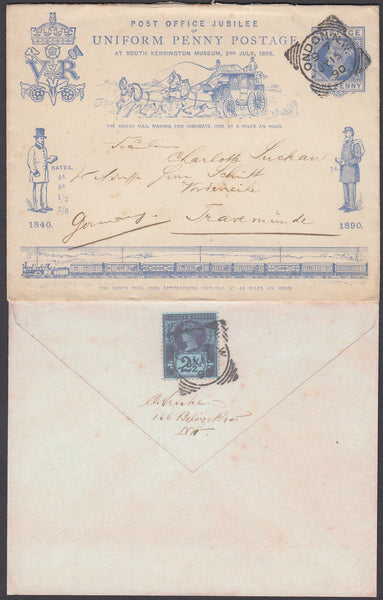 POST OFFICE JUBILEE
OF
UNIFORM PENNY POSTAGE
AT SOUTH KENSINGTON MUSEUM, 2ND JULY, 1890.
V R
LONDON
90
PENNY
THE NORTH MAIL MAKING FOR HIGHGATE, 1790, AT 8 MILES AN HOUR.
Fräulein
Charlotte Suckau
Vorderreihe
Germany Travemünde
RATES.
1/2
2/6
1840.
1890.
THE NORTH MAIL, 1890, APPROACHING CARLISLE AT 48 MILES AN HOUR.
2½
166 Belsize Road
N.W.